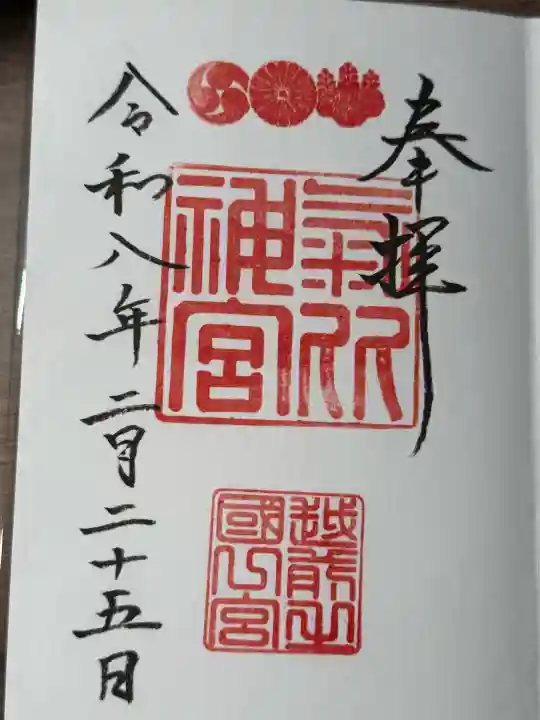 奉拝
氣比
神宮
越前之
國一宮
令和八年二月二十五日